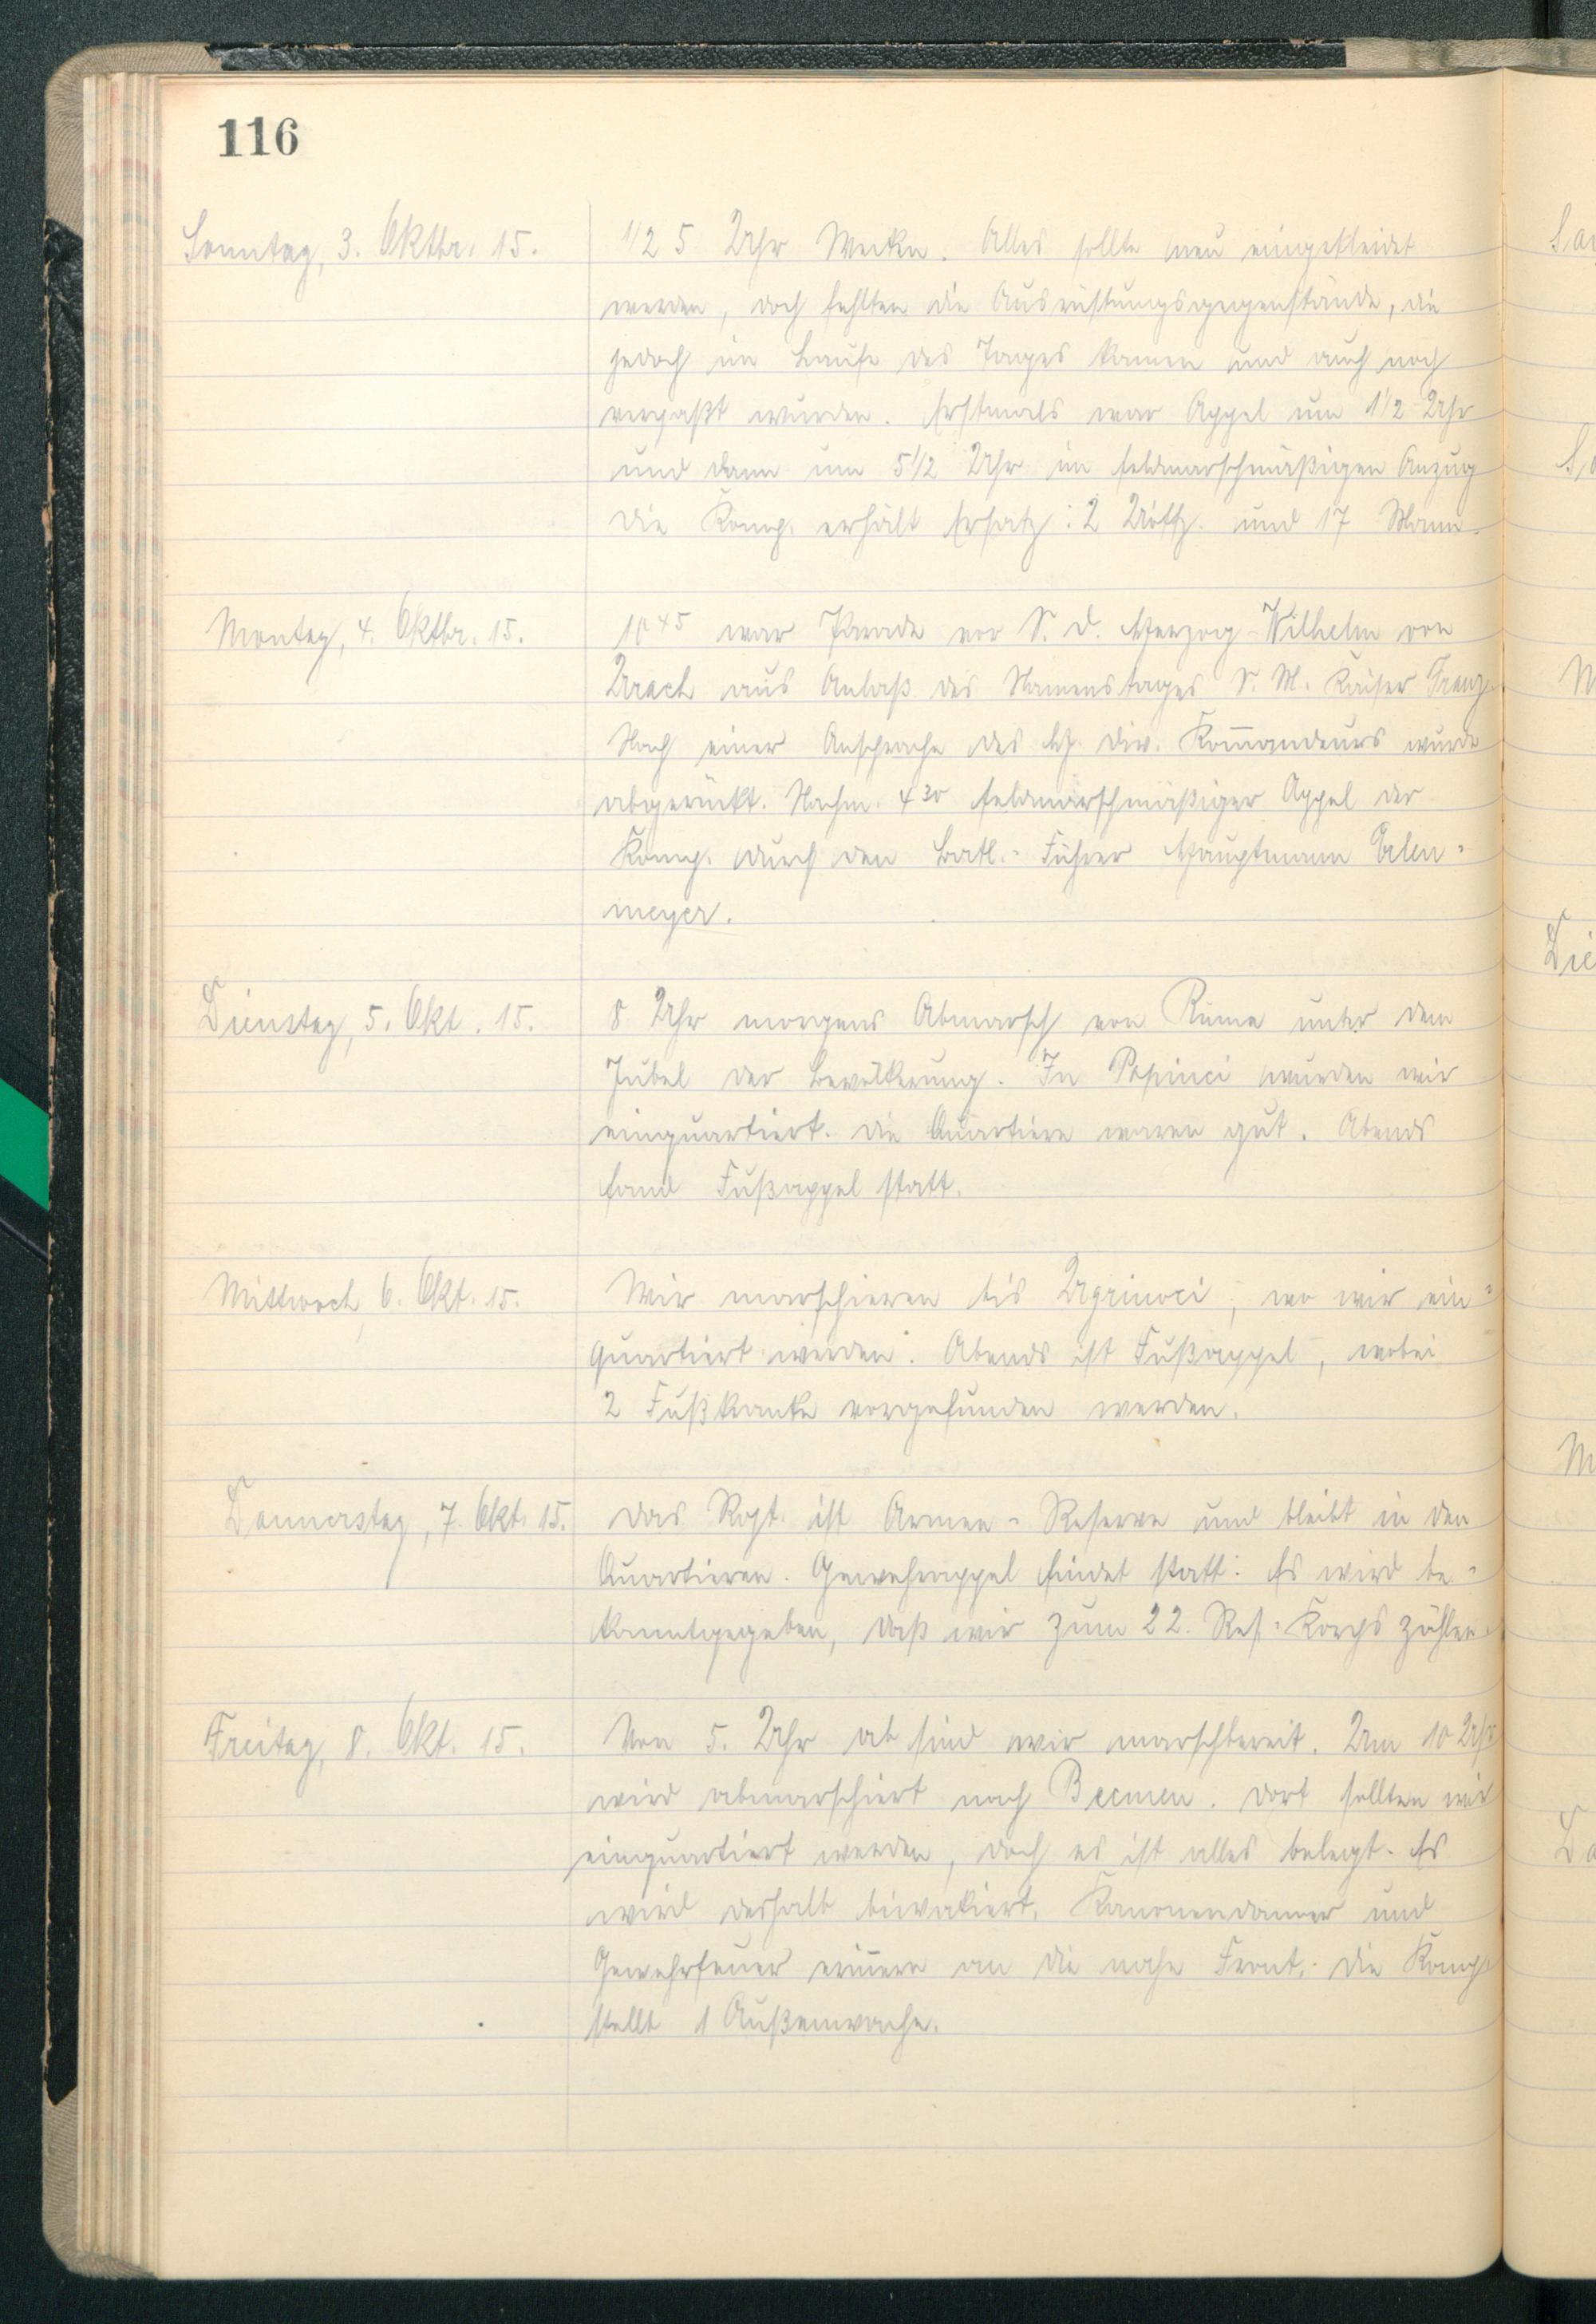 116
Sonntag, 3. Oktbr. 15.
1/2 5 Uhr Wecken. Alles sollte neu eingekleidet
werden, doch fehlten die Ausrüstungsgegenstände, die
jedoch im Laufe des Tages kamen und auch noch
verpaßt wurden. Erstmals war Appel um 1 1/2 Uhr
und dann um 5 1/2 Uhr im feldmarschmäßigen Anzug
Die Komp. erhält Ersatz: 2 Uoffz. und 17 Mann.
Montag, 4. Oktbr. 15.
10 45 war Parade vor S. D. Herzog Wilhelm von
Urach aus Anlaß des Namenstages S. M. Kaiser Franz
Nach einer Ansprache des H. Div. Kom̅andeurs wurde
abgerückt. Nachm. 4 30 feldmarschmäßiger Appel der
Komp. durch den Batl.-Führer Hauptmann Erlen-
meyer.
Dienstag, 5. Okt. 15.
8 Uhr morgens Abmarsch von Ruma unter dem
Jubel der Bevölkerung. In Popinci wurden wir
einquartiert. Die Quartiere waren gut. Abends
fand Fußappel statt.
Mittwoch, 6. Okt. 15.
Wir marschieren bis Ugrinoci, wo wir ein-
quartiert werden. Abends ist Fußappel, wobei
2 Fußkranke vorgefunden werden.
Donnerstag, 7. Okt. 15.
Das Rgt. ist Armee-Reserve und bleibt in den
Quartieren. Gewehrappel findet statt. Es wird be-
kanntgegeben, daß wir zum 22. Res.-Korps zählen.
Freitag, 8. Okt. 15.
Von 5. Uhr ab sind wir marschbereit. Um 10 Uhr
wird abmarschiert nach Becmen. Dort sollten wir
einquartiert werden, doch es ist alles belegt. Es
wird deshalb biwakiert. Kanonendonner und
Gewehrfeuer erin̅ern an die nahe Front. Die Komp.
stellt 1 Außenwache.